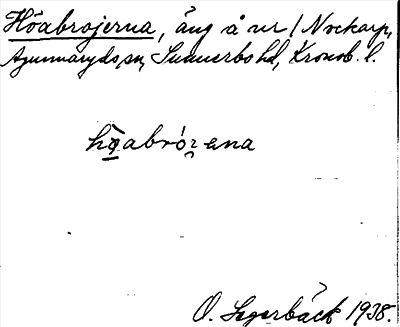 Höabrojerna, äng å nr 1 Nockarp,
Agunnaryds sn, Sunnerbo hd, Kronob. l.
höabrójena
O. Segerbäck 1938.